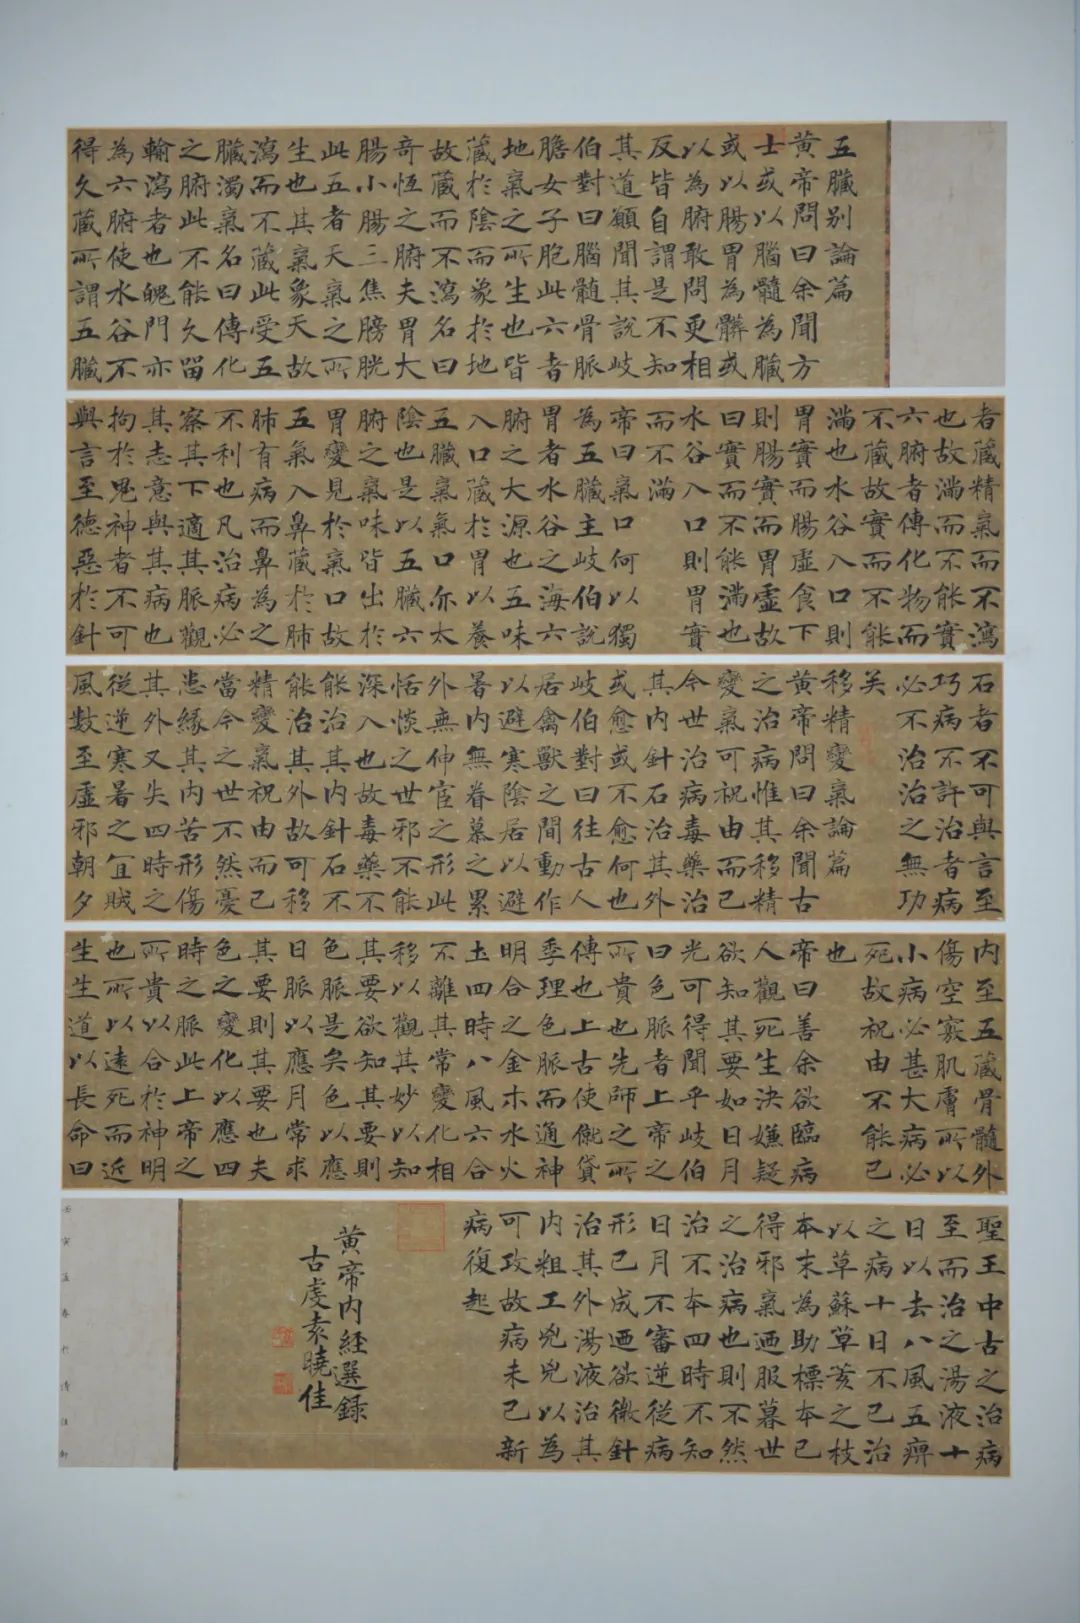 五臟别論篇
黄帝問曰余聞方
士或以腦髓為臟
或以腸胃為髒或
以為腑敢問更相
反皆自謂是不知
其道願聞其說岐
伯對曰腦髓骨脈
膽女子胞此六者
地氣之所生也皆
藏於陰而象於地
故藏而不瀉名曰
奇恒之腑夫胃大
腸小腸三焦膀胱
此五者天氣之所
生也其氣象天故
瀉而不藏此受五
臟濁氣名曰傳化
之腑此不能久留
輸瀉者也魄門亦
為六腑使水谷不
得久藏所謂五臟
者藏精氣而不瀉
也故満而不能實
六腑者傳化物而
不藏故實而不能
満也水谷入口則
胃實而腸虛食下
則腸實而胃虛故
曰實而不能満也
水谷入口則胃實
而不滿
帝曰氣口何以獨
為五臟主岐伯說
胃者水谷之海六
腑之大源也五味
入口藏於胃以養
五臟氣氣口亦太
陰也是以五臟六
腑之氣味皆出於
胃變見於氣口故
五氣入鼻藏於肺
肺有病而鼻為之
不利也凡治病必
察其下適其脈觀
其志意與其病也
拘於鬼神者不可
與言至德惡於針
石者不可與言至
巧病不許治者病
必不治治之無功
矣
移精變氣論篇
黄帝問曰余聞古
之治病惟其移精
變氣可祝由而已
今世治病毒藥治
其内針石治其外
或愈或不愈何也
岐伯對曰往古人
居禽獸之間動作
以避寒陰居以避
暑内無眷慕之累
外無伸宦之形此
恬惔之世邪不能
深入也故毒藥不
能治其内針石不
能治其外故可移
精變氣祝由而已
當今之世不然憂
患緣其内苦形傷
其外又失四時之
從逆寒暑之宜賊
風數至虛邪朝夕
内至五藏骨髓外
傷空竅肌膚所以
小病必甚大病必
死故祝由不能已
也
帝曰善余欲臨病
人觀死生決嫌疑
欲知其要如日月
光可得聞乎岐伯
曰色脈者上帝之
所貴也先師之所
傳也上古使僦貸
季理色脈而通神
明合之金木水火
土四時八風六合
不離其常變化相
移以觀其妙以知
其要欲知其要則
色脈是矣色以應
日脈以應月常求
其要則其要也夫
色之變化以應四
時之脈此上帝之
所貴以合於神明
也所以遠死而近
生生道以長命曰
聖王中古之治病
至而治之湯液十
日以去八風五痹
之病十日不已治
以草蘇草荄之枝
本末為助標本已
得邪氣迺服暮世
之治病也則不然
治不本四時不知
日月不審逆從病
形已成迺欲微針
治其外湯液治其
内粗工兇兇以為
可攻故病未已新
病復起
黄帝内經選録
古虔袁曉佳